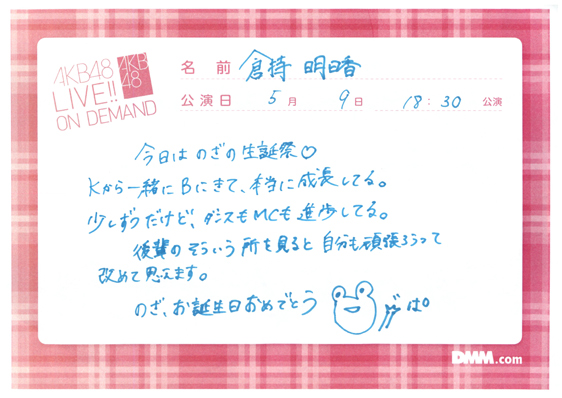 AKB48
LIVE!!
ON DEMAND
AKB
48
名 前 倉持 明日香
公演日 5月 9日 18:30 公演
今日は のざの生誕祭♡
Kから一緒にBにきて、本当に成長してる。
少しずつだけど、ダンスもMCも進歩してる。
後輩のそういう所を見ると自分も頑張ろうって
改めて思えます。
のざ、お誕生日おめでとう
ば。
DMM.com